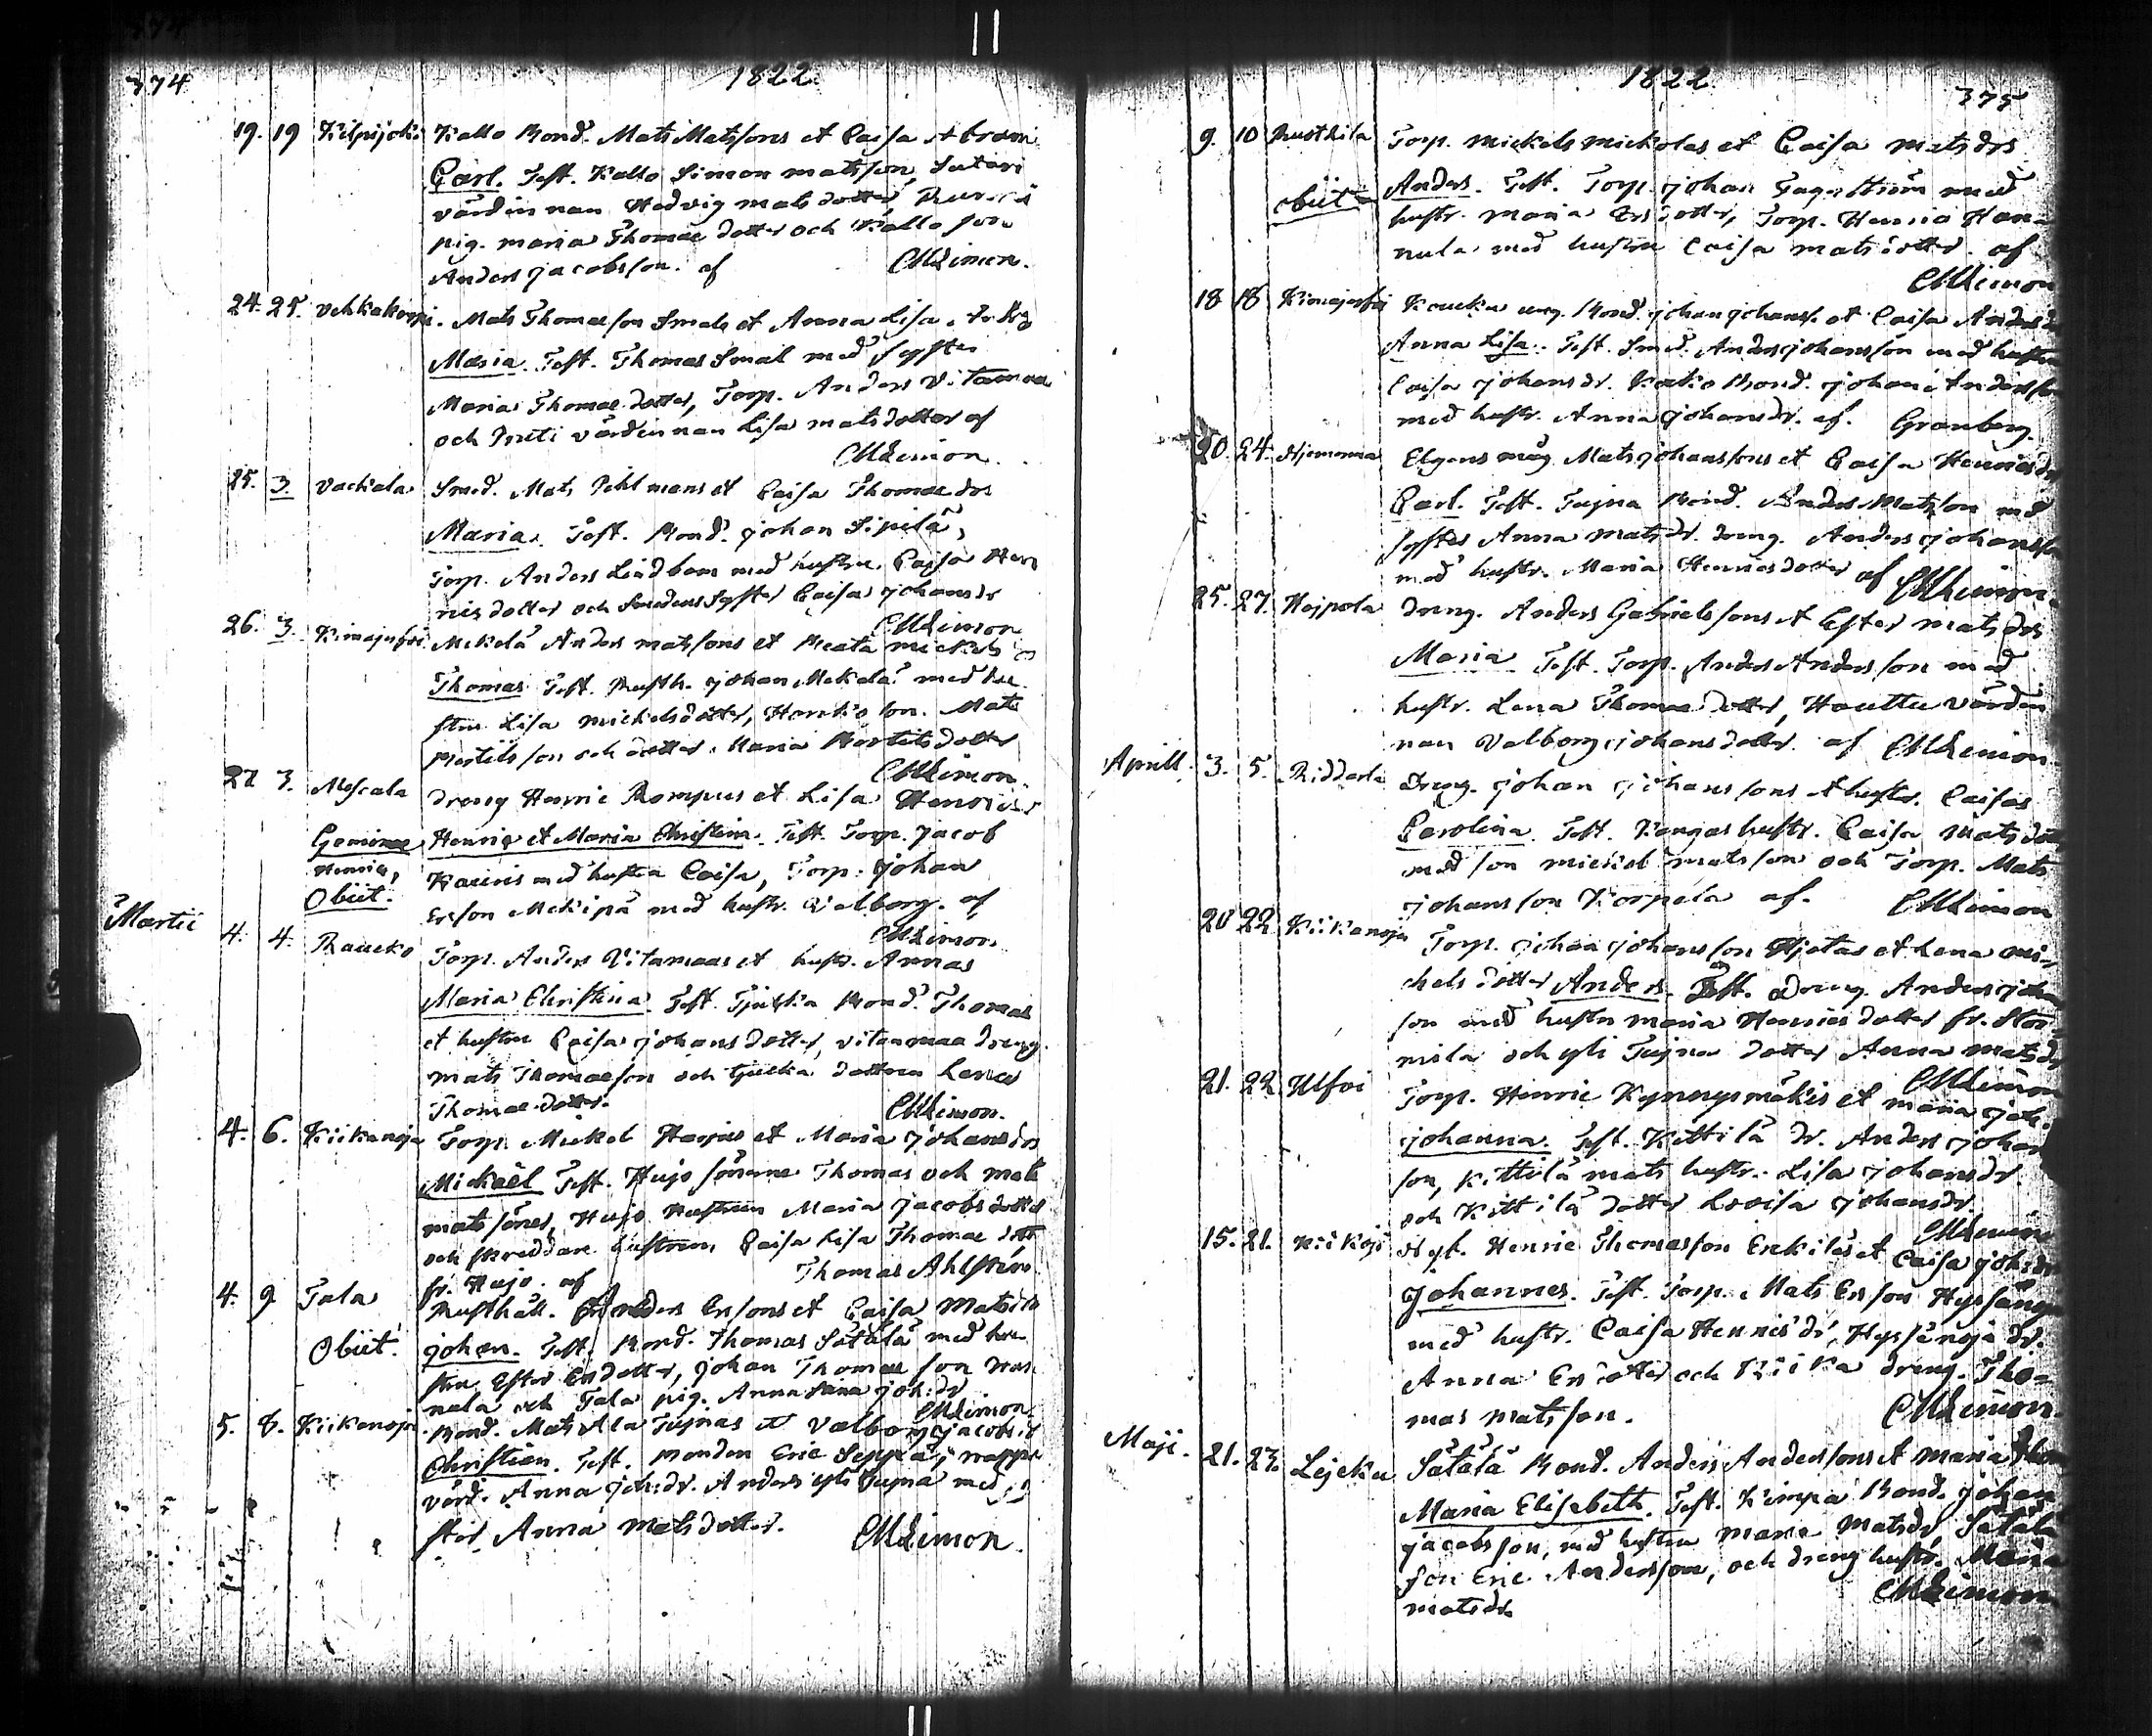 374
1822.
19. 19 Kilpijoki Kallo Bond. Mats Matssons et Caisa Abram
Carl. Test. Kallo Simon matsson, Sutari
värdinnan Hedvig mats dotter,
pig. maria Thomae dotter och Kallo son
Anders Jacobsson. af CMLimon.
24. 25. Vehkakorpi. Mats Thomaeson Smals et Anna Lisa
Maria. Test. Thomas Smal med syster
Maria Thomae dotter, Torp. Anders Vitamaa
och Pretti värdinnan Lisa matsdotter af
CMLimon.
25. 3. Vackala Smed. Mats Pihlmans et Caisa Thomae dos
Maria. Test. Bond. johan Sipilä,
Torp. Anders Lindbom med hustru. Caisa Hen
ries dotter och Smedens Syster Caisa johansdr
CMLimon
26. 3. Kimajusoi. Mekelä Anders matssons et Beata mickels
Thomas. Test. Rusth. johan Mekelä med hu
stru Lisa mickelsdotter, son. Mats
Bertilsson och dotter Maria Bertilsdotter
CMLimon.
27 3. Mescala dreng Henric Rompus et Lisa Henrics
Geminae Henric et Maria Christina. Test. Torp. Jacob
Henric, Kauris med hustru Caisa, Torp. johan
Obiit. Erson Mekipä med hustr. Valborg. af
CMLimon
Martii 4. 4. Raucko Torp. Anders Vitamaas et hustr. Annas
Maria Christina Test. Tjucka Bond. Thomas
et hustru Caisa johans dotter, vitaamaa dreng.
mats Thomaeson och tjucka dottren Lena
Thomae dotter. CMLimon.
4. 6. Kiikanoja Torp. Mickel Harjus et Maria johansdrs
Mickaël Test. Hujo sönerne Thomas och mats
mats söner, Hujo hustrun Maria jacobs dotter
och skreddare hustrun, Caisa Lisa Thomae dotter
fr. Hujo. af Thomas Ahlström
4. 9 Tala Rusthåll. Anders Ersons et Caisa Matsdrs
Obiit. johan. Test. Bond. Thomas Sätälä med hu
stru Ester Ersdotter, johan Thomae son
nula och Tala pig. Anna Lena joh:dr
CMLimon.
5. 8. Kiikanoja Bond. Mats Ala Tujnas et Valborg jacobsd
Christian. Test. Bonden Eric Seppä,
värd. Anna joh:dr. Anders yli Tujna med sy
ster Anna Matsdotter. CMLimon.
1822.
375
9. 10 Rusthila Torp. Mickels mickolas et Caisa matsdrs
Anders. Test. Torp. johan Fagerström med
obiit hustr. maria Ersdotter, Torp. Henric Han
nula med hustru Caisa matsdotter. af
CMLimon
18 18 Kimajusoi Koucku ung. Bond. johan johans. et Caisa Andersdr
Anna Lisa. Test. Smed. Anders johansson med hustru
Caisa johansdr. Kako Bond. johan Andersson
med hustr. Anna johansdr. af. Granberg.
20. 24. Njemenma Elgens måg Mats johanssons et Caisa Henricsdr
Carl. Test. Tujna Bond. Anders Matsson med
syster Anna matsdr. dreng. Anders johansson
med hustr. Maria Henricsdotter af CMLimon.
25. 27. Hojpola dreng. Anders Gabrielssons et Ester matsdrs
Maria Test. Torp. Anders Andersson med
hustr. Lena Thomae dotter, Houttu värdin
nan Valborg johansdotter. af CMLimon
Aprill. 3. 5. Ridderla Dreng. johan johanssons et hustr. Caisas
Carolina Test. Kangas hustr. Caisa Matsdotter
med son mickel matsson och Torp. Mats
johansson Korpela af. CMLimon
20 22 Kiikanoja Torp. johan johansson Hjetas et Lena mi
chelsdotter Anders. Test. Dreng. Anders johan
son med hustru maria Henrics dotter fr. Stor
mila och yli Tujna dotter Anna matsdr
CMLimon
21. 22. Ulfoi Torp. Henric Kynnysmäkis et maria joh.
johanna. Test. Kittilä dr. Anders johan
son, Kittilä mats hustr. Lisa johansdr.
och Kittilä dotter Lovisa johansdr.
CMLimon
15. 21. Kiikoi Nyb. Henric Thomasson Erkiläs et Caisa joh:dr
johannes. Test. Torp. Mats Erson Hyssänoja
med hustr. Caisa Henricsdr, Hyssänoja dr.
Anna Ersdotter och Kiika dreng. Tho=
mas matsson. CMLimon.
Maji. 21. 23. Lejeku Sätälä Bond. Anders Anderssons et maria
Maria Elisabeth. Test. Kimpa Bond. johan
jacobsson, med hustru maria Matsdr, Sätälä
son Eric Andersson, och dreng hustr. Maria
matsdr. CMLimon